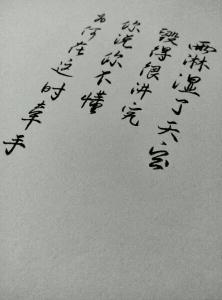 雨淋湿了天空
毁得很讲究
你说你不懂
为何在这时牵手